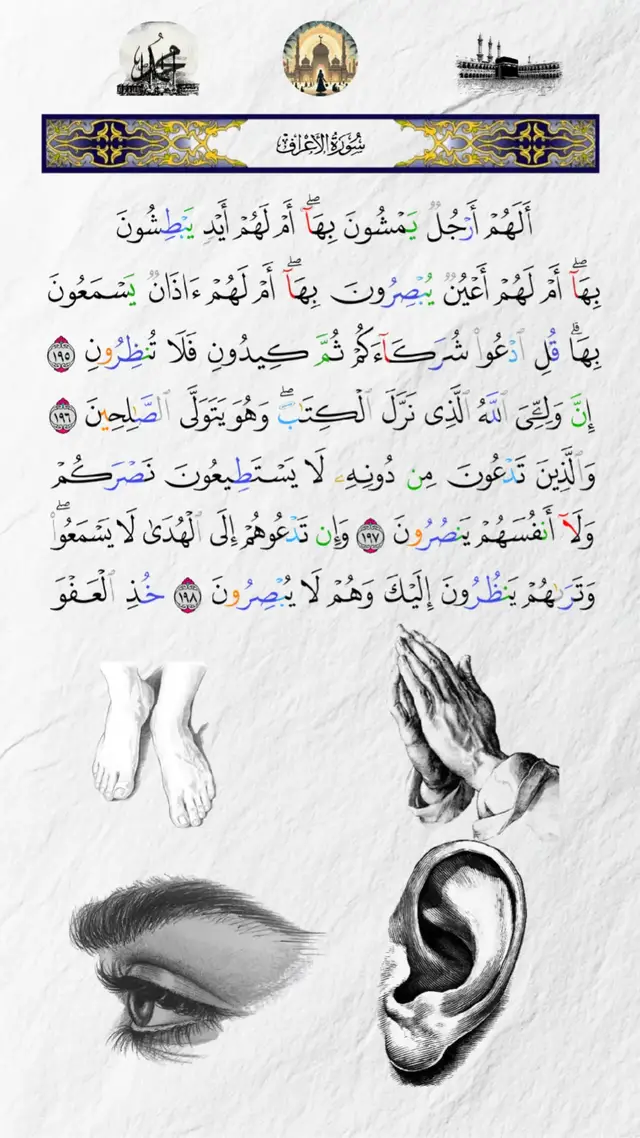 محمد
سُورَةُ الأَعْرَافِ
أَلَهُمْ أَرْجُلٌ يَمْشُونَ بِهَآۖ أَمْ لَهُمْ أَيْدٍ يَبْطِشُونَ
بِهَآۖ أَمْ لَهُمْ أَعْيُنٌ يُبْصِرُونَ بِهَآۖ أَمْ لَهُمْ ءَاذَانٌ يَسْمَعُونَ
بِهَاۗ قُلِ ٱدْعُوا۟ شُرَكَآءَكُمْ ثُمَّ كِيدُونِ فَلَا تُنظِرُونِ ١٩٥
إِنَّ وَلِـِّۧىَ ٱللَّهُ ٱلَّذِى نَزَّلَ ٱلْكِتَٰبَۖ وَهُوَ يَتَوَلَّى ٱلصَّٰلِحِينَ ١٩٦
وَٱلَّذِينَ تَدْعُونَ مِن دُونِهِۦ لَا يَسْتَطِيعُونَ نَصْرَكُمْ
وَلَآ أَنفُسَهُمْ يَنصُرُونَ ١٩٧ وَإِن تَدْعُوهُمْ إِلَى ٱلْهُدَىٰ لَا يَسْمَعُوا۟ۖ
وَتَرَىٰهُمْ يَنظُرُونَ إِلَيْكَ وَهُمْ لَا يُبْصِرُونَ ١٩٨ خُذِ ٱلْعَفْوَ